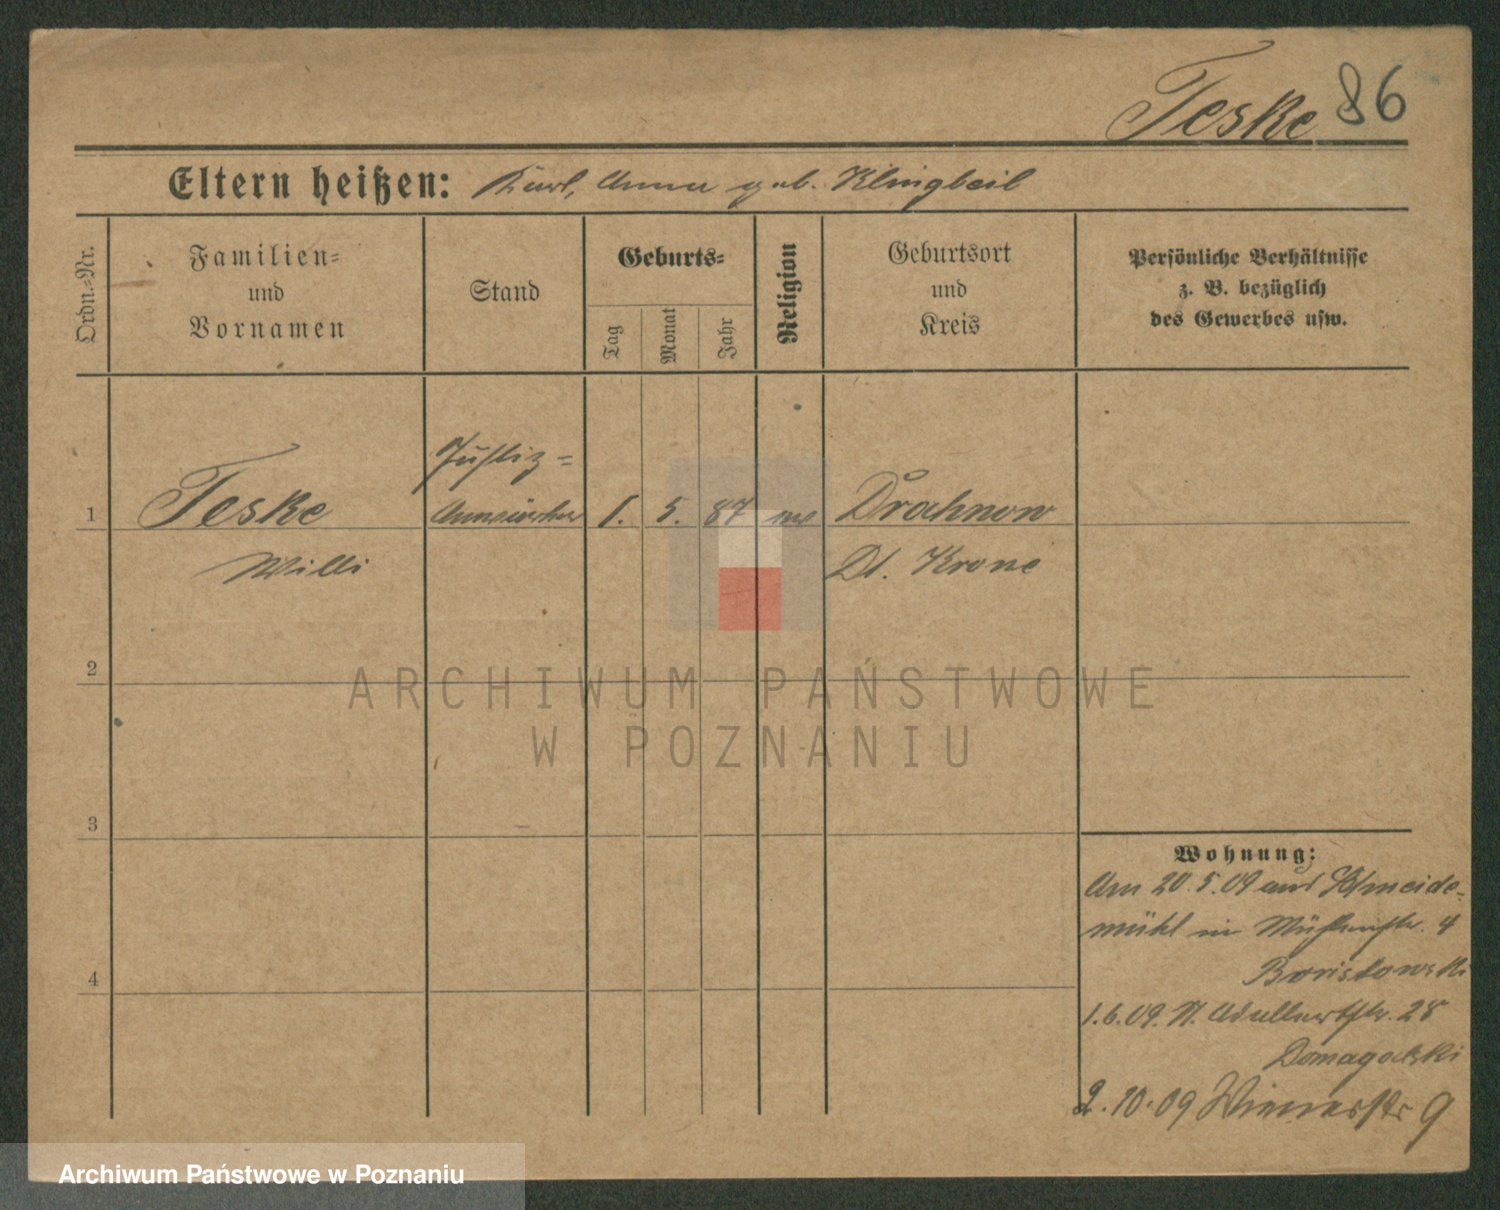 Teske 86
Eltern heißen: Karl, Anna geb. Klingbeil
Ordn.-Nr.
Familien-
und
Vornamen
Stand
Geburts-
Tag
Monat
Jahr
Religion
Geburtsort
und
Kreis
Persönliche Verhältnisse
z. B. bezüglich
des Gewerbes usw.
Justiz-
1 Teske Anwärter 1. 5. 87 ev Drahnow
Willi Dt. Krone
2
3
4
Wohnung:
Am 20.5.09 aus Schneide-
mühl in Mühlenstr. 4
1.6.09. N. Adalbertstr. 28
Domagalski
2.10.09 Wienerstr 9
ARCHIWUM PAŃSTWOWE
W POZNANIU
Archiwum Państwowe w Poznaniu